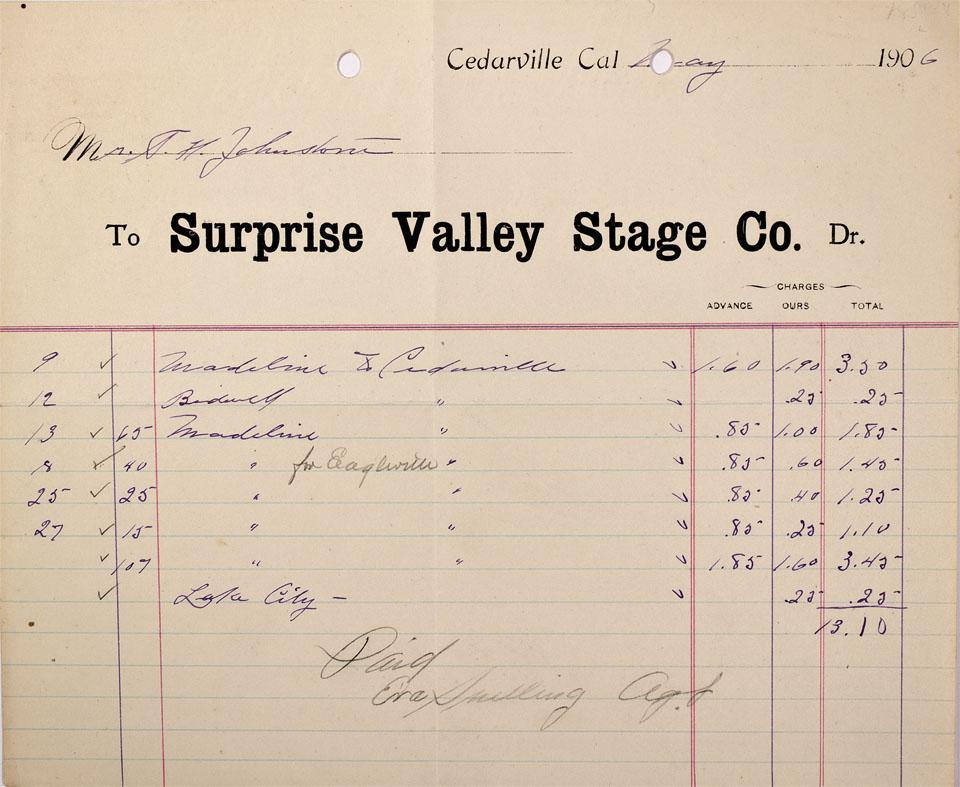 Cedarville Cal May 1906
Mr. T. H. Johnstone
To Surprise Valley Stage Co. Dr.
CHARGES
ADVANCE OURS TOTAL
9 ✓ Madeline to Cedarville ✓ 1.60 1.90 3.50
12 ✓ Bidwell " ✓ .25 .25
13 ✓ 65 Madeline " ✓ .85 1.00 1.85
18 ✓ 40 " for Eagleville " ✓ .85 .60 1.45
25 ✓ 25 " " ✓ .85 .40 1.25
27 ✓ 15 " " ✓ .85 .25 1.10
✓ 107 " " ✓ 1.85 1.60 3.45
✓ Lake City — ✓ .25 .25
13.10
Paid
Eva Snelling Agt